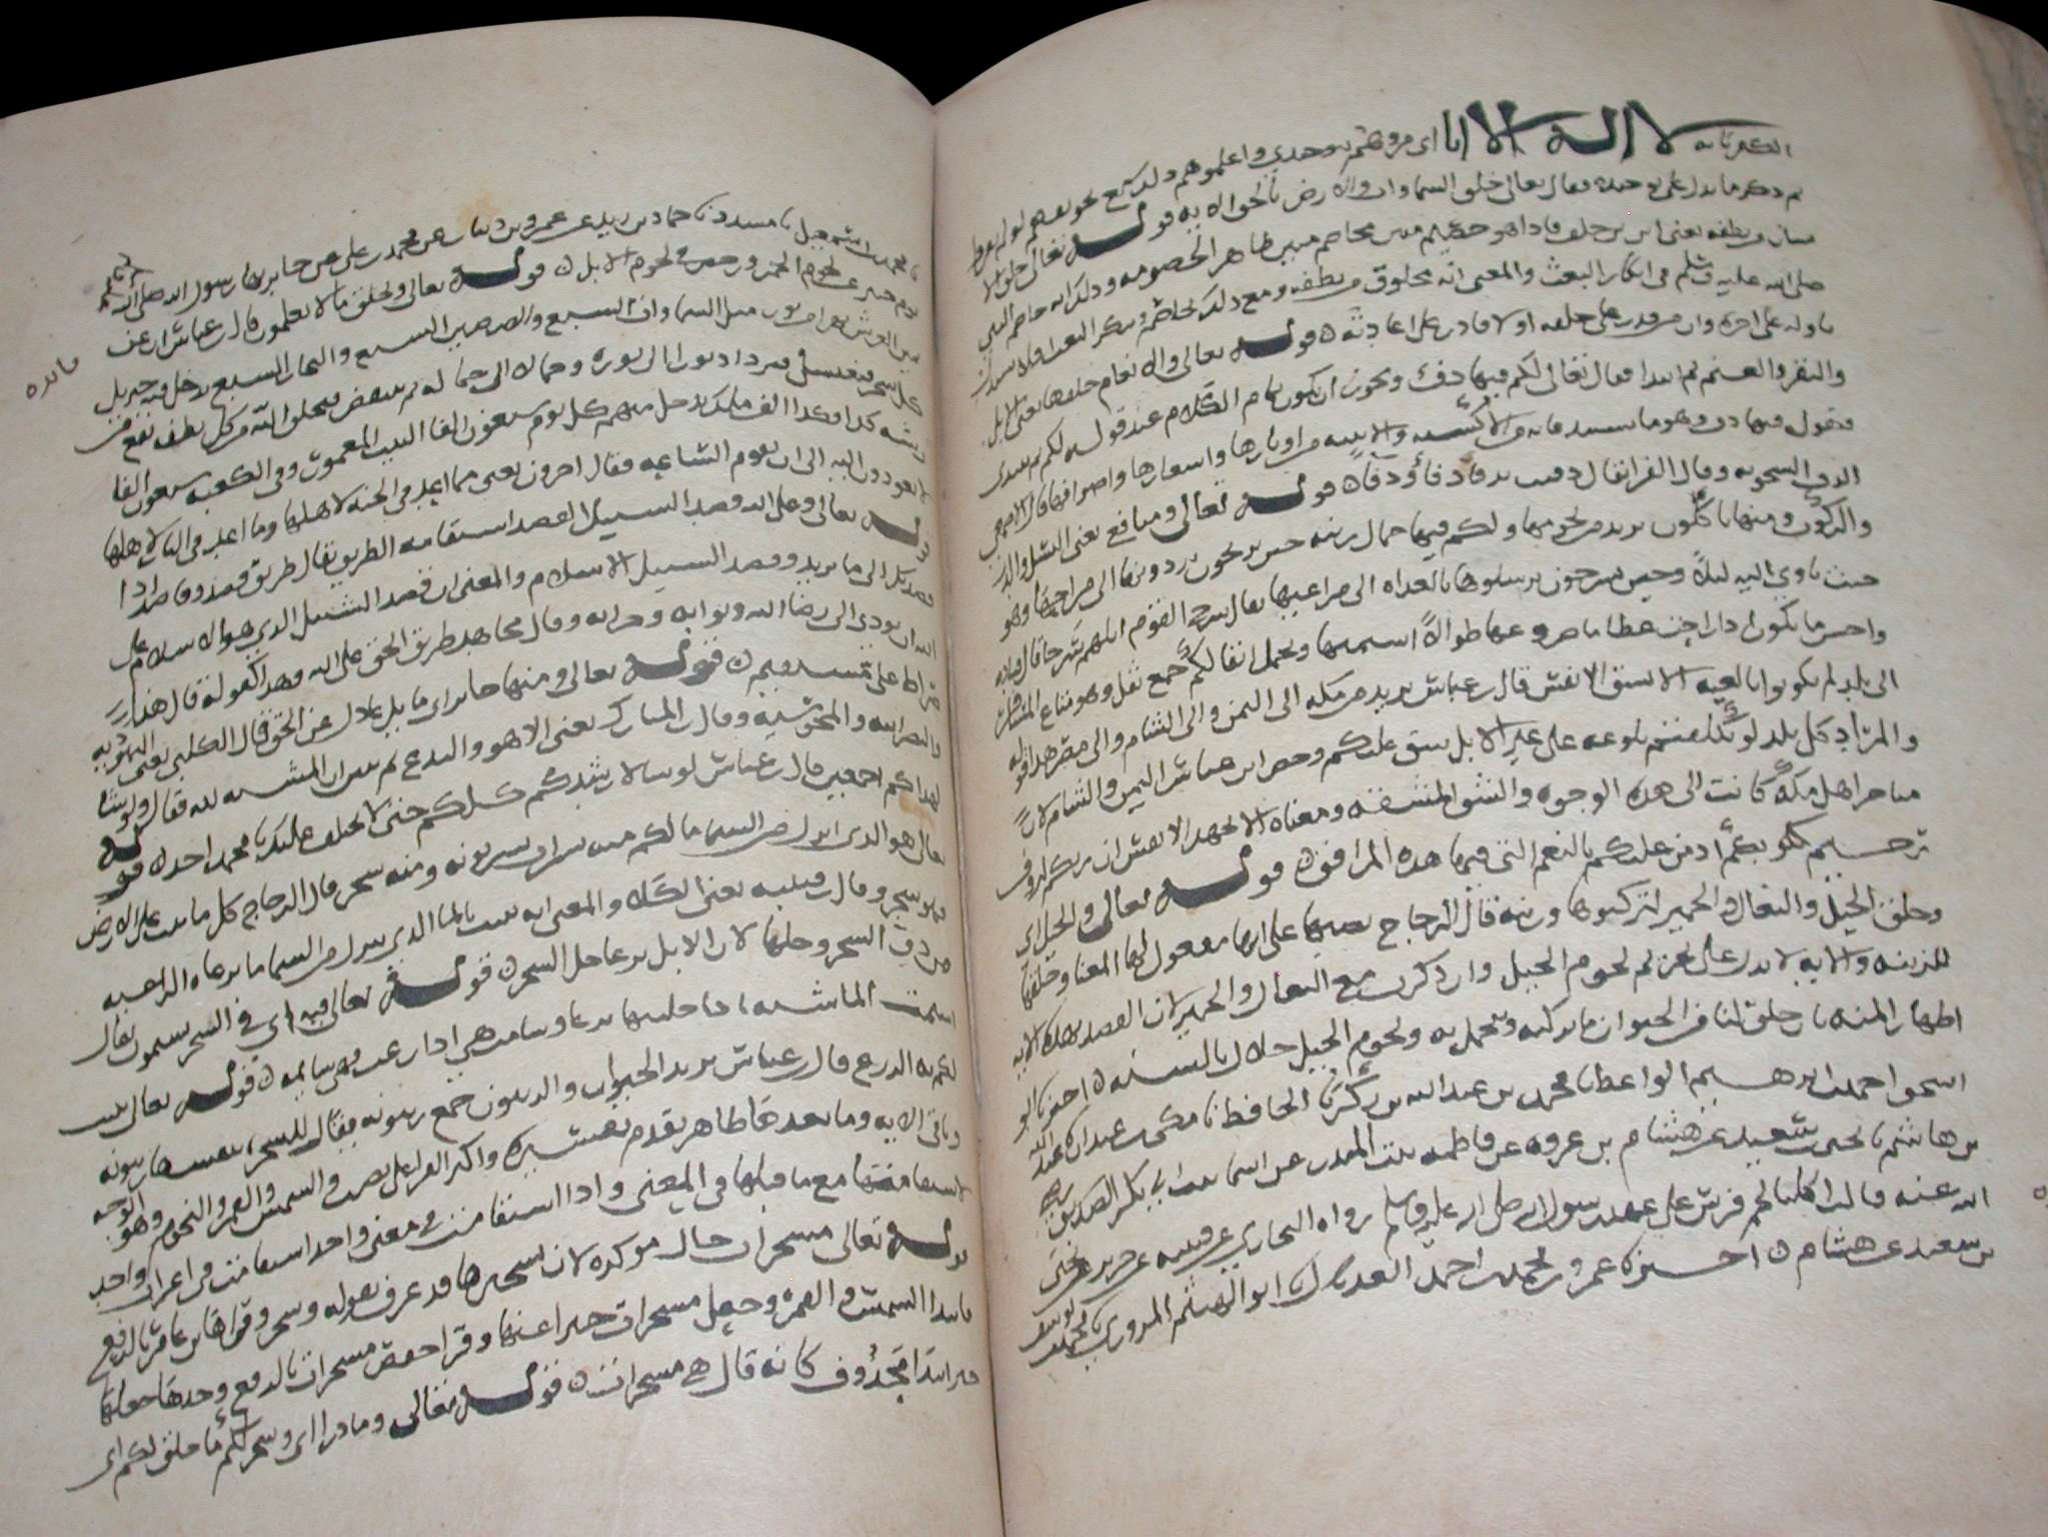 الكفر بانه لا اله الا انا اي مروهم بتوحيدي واعلموهم ذلك مع تخويفهم لو لم يقروا
ثم ذكر ما يدل على توحيده فقال تعالى خلق السماوات والارض بالحق الايه قوله تعالى خلق الا
نسان من نطفه يعني ابي بن خلف فاذا هو خصيم مبين مخاصم مبين ظاهر الخصومه وذلك انه خاصم النبي
صلى الله عليه وسلم في انكار البعث والمعنى انه مخلوق من نطفه ومع ذلك يخاصم وينكر البعث افلا يستدل
باوله على اخره وان من قدر على خلقه اولا قادر على اعادته قوله تعالى والانعام خلقها يعني الابل
والبقر والغنم ثم ابتدا فقال تعالى لكم فيها دفء ويجوز ان يكون تمام الكلام عند قوله لكم ثم يبتدي
فيقول فيها دفء وهو ما يستدفا به من الاكسيه والابنيه من اوبارها واشعارها واصوافها قال الاصمعي
الدفء السخونه وقال الفرا يقال دفيت تدفا دفا ودفا قوله تعالى ومنافع يعني النسل والدر
والركوب ومنها تاكلون يريد من لحومها ولكم فيها جمال زينه حين تريحون تردونها الى مراحها وهو
حيث تاوي اليه ليلا وحين تسرحون ترسلونها بالغداه الى مراعيها يقال سرح القوم ابلهم سرحا قال قتاده
واحسن ما تكون اذا راحت عظاما ضروعها طوالا اسنمتها وتحمل اثقالكم جمع ثقل وهو متاع المسافر
الى بلد لم تكونوا بالغيه الا بشق الانفس قال ابن عباس يريد من مكه الى اليمن والى الشام والى مصر هذا قوله
والمراد كل بلد لو تكلفتم بلوغه على غير الابل لشق عليكم وخص ابن عباس اليمن والشام لان
متاجر اهل مكه كانت الى هذه الوجوه والشق المشقه ومعناه الا بجهد الانفس ان ربكم لرؤف
رحيم بكم اذ من عليكم بالنعم التي فيها هذه المرافق قوله تعالى والخيل اي
وخلق الخيل والبغال والحمير لتركبوها وزينه قال الزجاج نصبها على انها مفعول لها المعنى وخلقها
للزينه والايه لا تدل على تحريم لحوم الخيل وان ذكرت مع البغال والحمير لان القصد بهذه الايه
اظهار المنه بان خلق لنا من الحيوان ما نركبه ونتجمل به ولحوم الخيل حلال بالسنه اخبرنا ابو
اسحق احمد بن ابرهيم الواعظ نا محمد بن عبد الله بن زكريا الحافظ نا مكي بن عبدان نا عبد الله
بن هاشم نا يحيى بن سعيد عن هشام بن عروه عن فاطمه بنت المنذر عن اسما بنت ابي بكر الصديق رضي
الله عنه قالت اكلنا لحم فرس على عهد رسول الله صلى الله عليه وسلم رواه البخاري عن قتيبه عن جرير عن يحيى
بن سعيد عن هشام اخبرنا عمرو بن محمد بن احمد العدل نا ابو الهيثم المروزي نا محمد بن يوسف
نا محمد بن اسمعيل نا مسدد نا حماد بن زيد عن عمرو بن دينار عن محمد بن علي عن جابر نهى رسول الله صلى الله عليه وسلم
يوم خيبر عن لحوم الحمر ورخص في لحوم الخيل قوله تعالى ويخلق ما لا تعلمون قال ابن عباس ان عن
يمين العرش نهرا من نور مثل السماوات السبع والارضين السبع والبحار السبع يدخل فيه جبريل
كل سحر فيغتسل فيزداد نورا الى نوره وجمالا الى جماله ثم ينتفض فيخلق الله من كل نقطه تقع من
ريشه كذا وكذا الف ملك يدخل منهم كل يوم سبعون الفا البيت المعمور وفي الكعبه سبعون الفا
لا يعودون اليه الى ان تقوم الساعه وقال اخرون يعني مما اعد في الجنه لاهلها وما اعد في النار لاهلها
قوله تعالى وعلى الله قصد السبيل القصد استقامه الطريق يقال طريق قصد وقاصد اذا
قصد بك الى ما تريد وقصد السبيل الاسلام والمعنى ان قصد السبيل الذي هو الاسلام على
الله ان يودي الى رضا الله وثوابه وجزائه وقال مجاهد طريق الحق على الله وهذا كقوله قال هذا
صراط علي مستقيم قوله تعالى ومنها جائر اي مايل عادل عن الحق قال الكلبي يعني اليهوديه
والنصرانيه والمجوسيه وقال ابن المبارك يعني الاهوا والبدع ثم بين ان المشيه لله فقال ولو شا
لهداكم اجمعين قال ابن عباس لو شا لارشدكم كلكم حتى لا يختلف عليك يا محمد احد قوله
تعالى هو الذي انزل من السما ما لكم منه شراب تشربونه ومنه شجر قال الزجاج كل ما نبت على الارض
فهو شجر وقال ابن قتيبه يعني الكلا والمعنى انه ينبت بالما الذي ينزل من السما ما ترعاه الراعيه
من ورق الشجر وحملها لان الابل ترعى جل الشجر قوله تعالى فيه اي في الشجر تسيمون يقال
اسمت الماشيه اذا خليتها ترعى وسامت هي اذا رعت فهي سايمه قوله تعالى ينبت
لكم به الزرع قال ابن عباس يريد الحبوب والزيتون جمع زيتونه يقال للشجر نفسها زيتونه
وباقي الايه وما بعدها ظاهر تقدم تفسيره واكثر القرا على نصب والشمس والقمر والنجوم وهو الوجه
لاستقامتها مع ما قبلها في المعنى واذا استقامت في معنى واحد استقامت في اعراب واحد
قوله تعالى مسخرات حال موكده لان تسخيرها قد عرف بقوله وسخر وقراها ابن عامر بالرفع
فابتدا الشمس والقمر وجعل مسخرات خبرا عنها وقرا حفص مسخرات بالرفع وحدها جعلها
خبر ابتدا محذوف كانه قال هي مسخرات قوله تعالى وما ذرا اي وسخر لكم ما خلق لكم اي